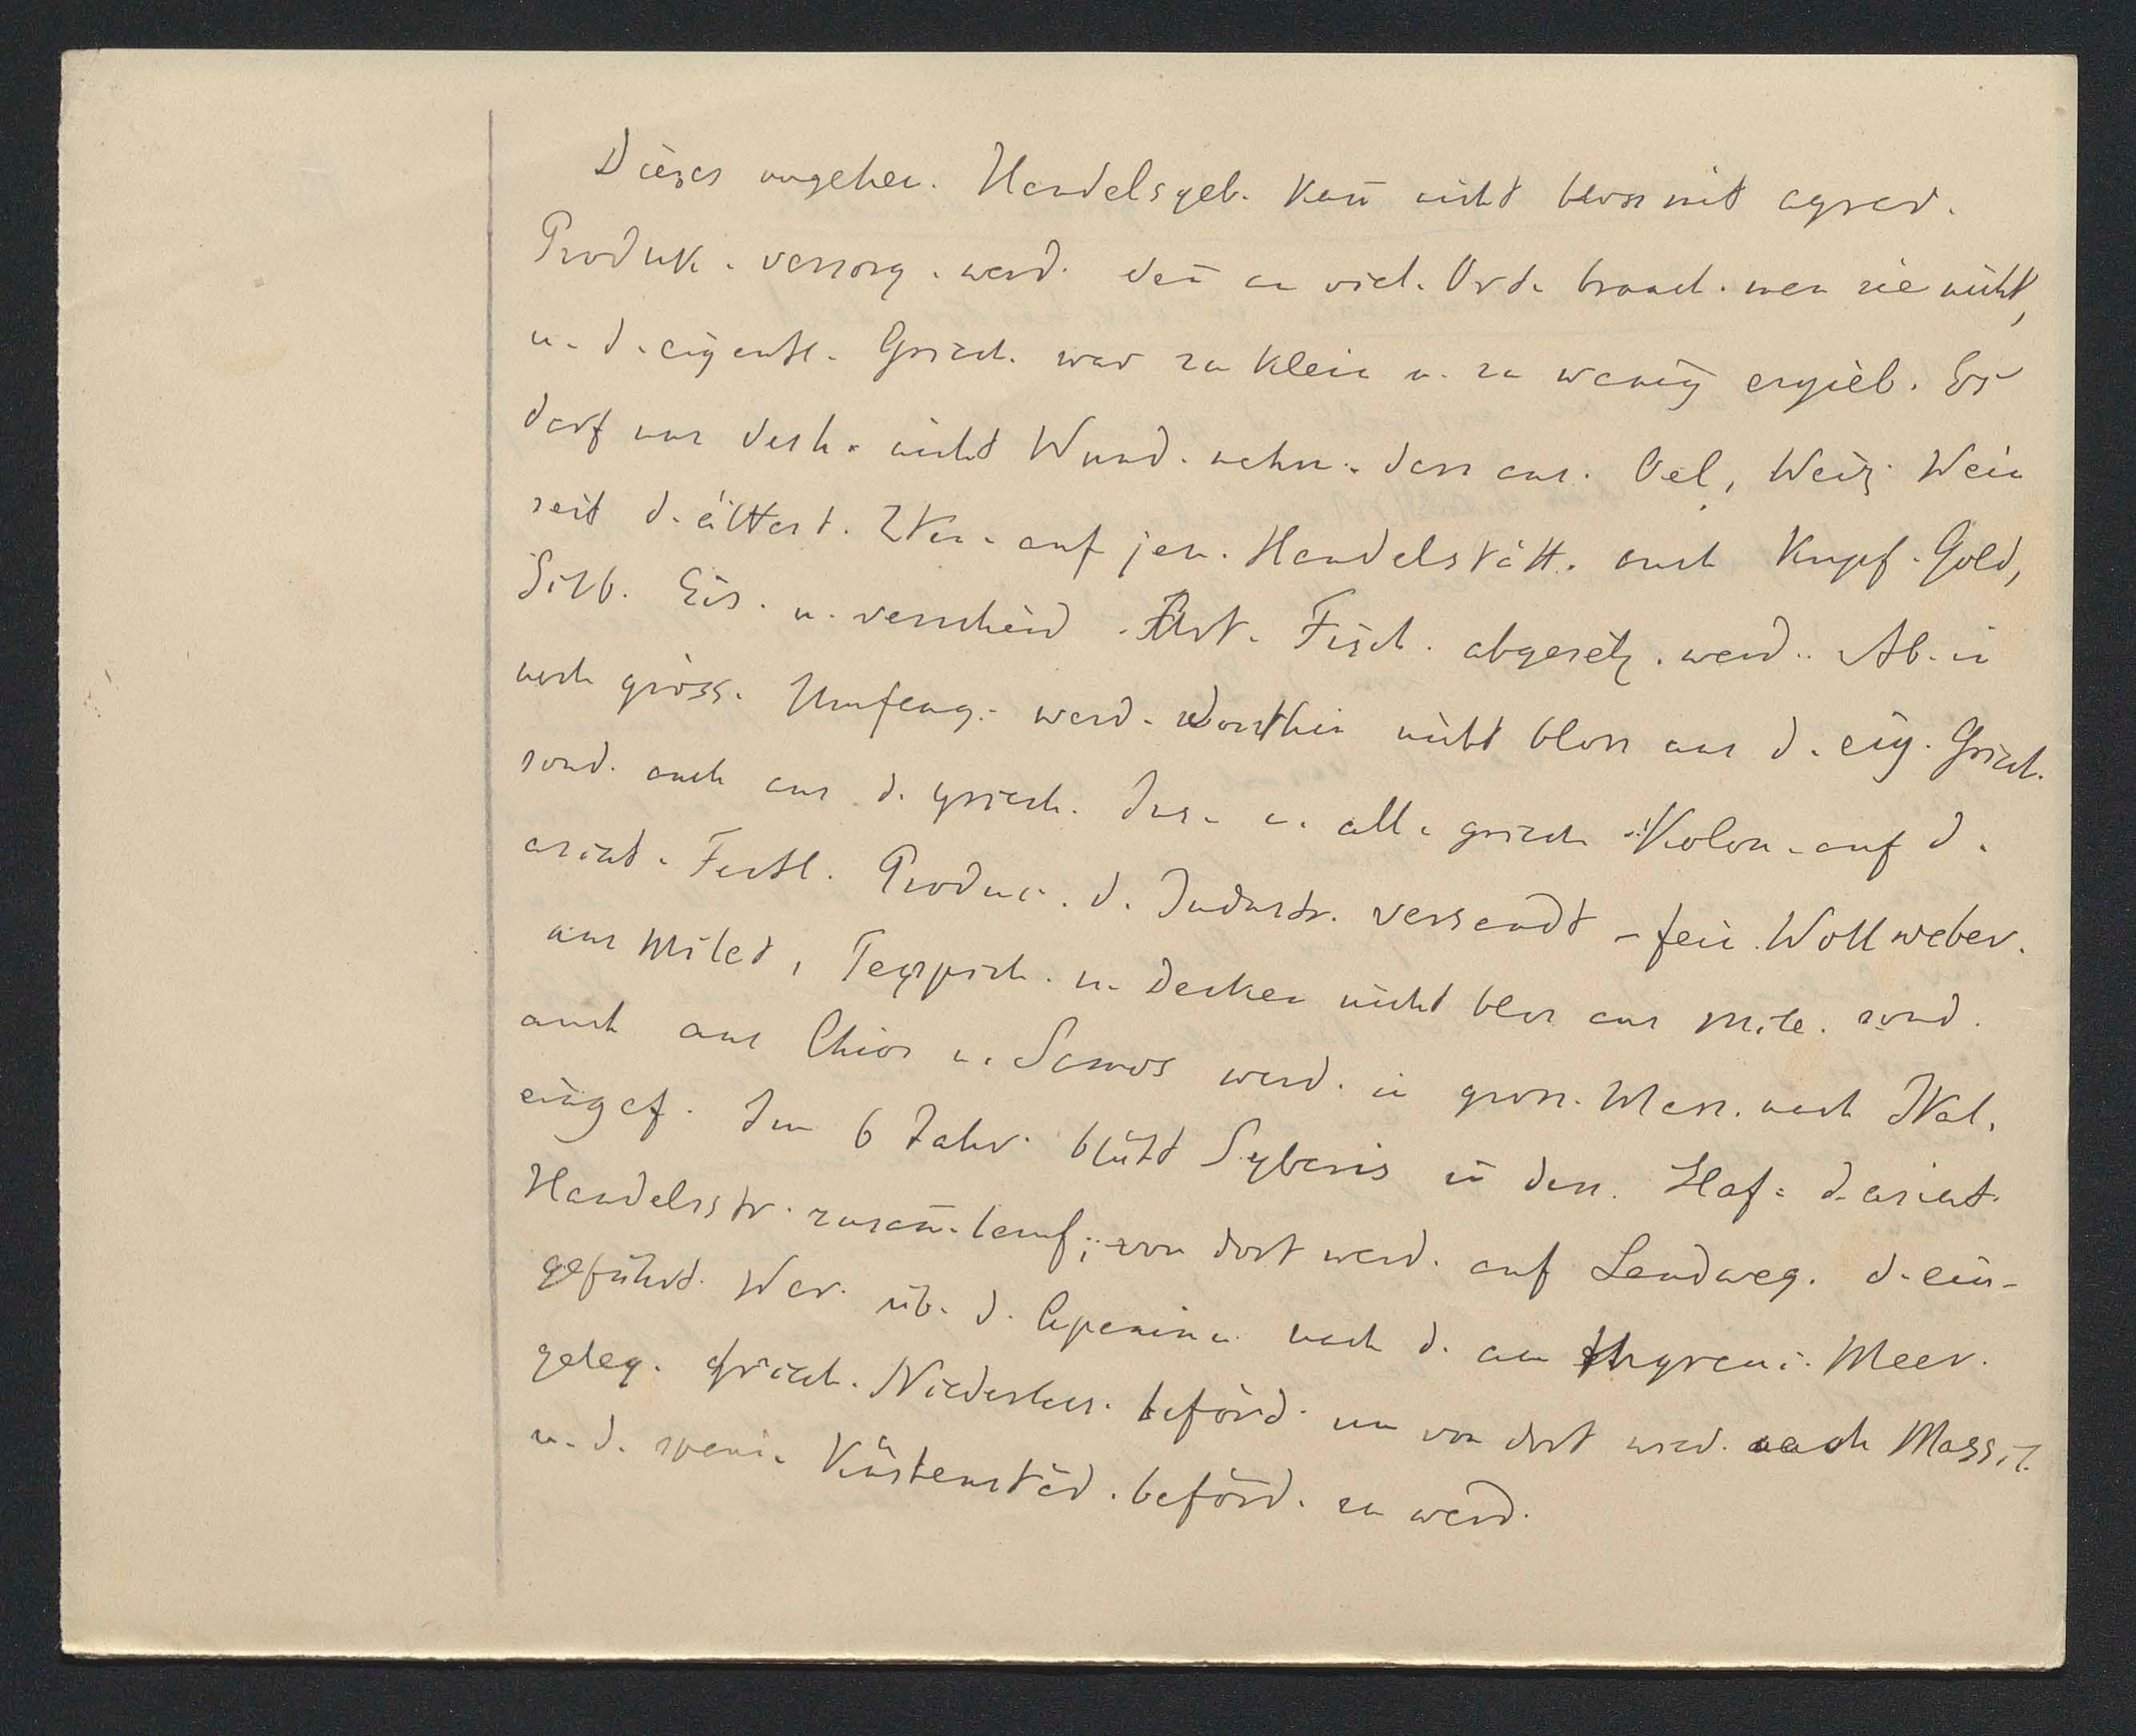 Dieses ungeheu. Handelsgeb. kan̄ nicht bloss mit agrar.
Produk. versorg. werd. den̄ an viel. Ort. brauch. man sie nicht,
u. d. eigentl. Griech. war zu klein u. zu wenig ergieb. Es
darf uns desh. nicht Wund. nehm. dass aus. Oel, Weiz. Wein
seit d. ältest. Zten. auf jen. Handelstätt. auch Kupf. Gold,
Silb. Eis. u. verschied. Art. Fisch. abgesetz. werd. Ab. in
noch gröss. Umfang. werd. dorthin nicht bloss aus d. eig. Griech.
sond. auch aus d. griech. Ins. u. all. griech. Kolon. auf d.
asiat. Festl. Produc. d. Industr. versandt – fein. Wollweber.
aus Milet, Teppich. u. Decken nicht blos aus Mile. sond.
auch aus Chios u. Samos werd. in gross. Mass. nach Ital.
eingef. Im 6 Jahr. blüht Sybaris in dess. Haf. d. asiat.
Handelsstr. zusam̄. lauf; von dort werd. auf Landweg. d. ein-
geführt. War. üb. d. Apenin. nach d. am thyreni. Meer.
geleg. griech. Niederlass. beförd. um von dort wied. nach Massil.
u. d. spani. Küstenstäd. beförd. zu werd.